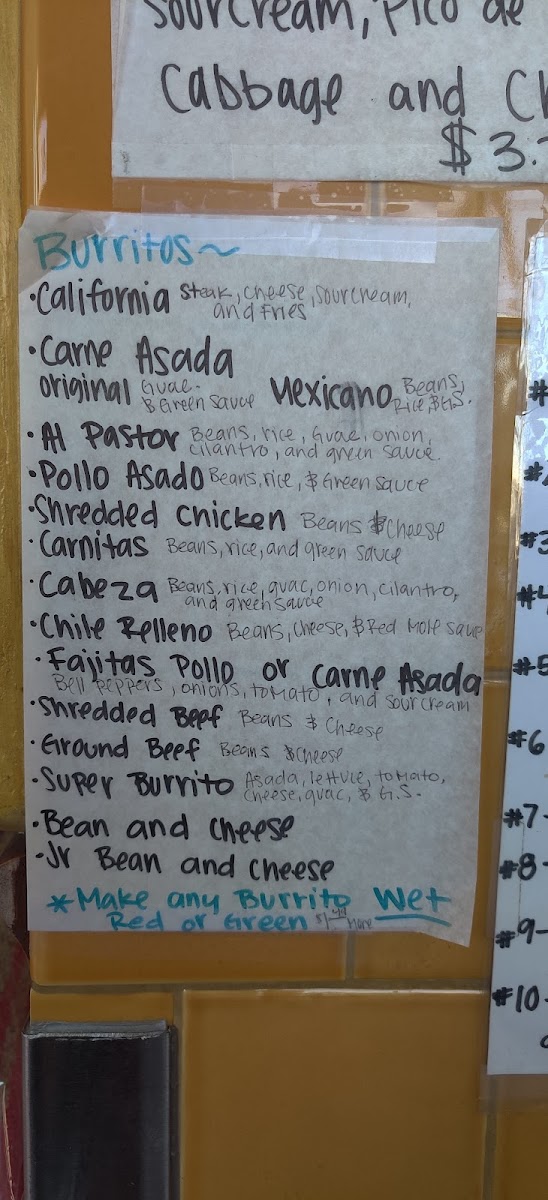 sourcream, Pico de
Cabbage and Ch
$3.
Burritos~
·California Steak, cheese, sourcream,
and Fries
·Carne Asada
original Guac. Mexicano Beans,
$ Green sauce Rice, $ G.S.
·Al Pastor Beans, rice, Guac, onion,
cilantro, and green sauce.
·Pollo Asado Beans, rice, $ Green sauce
·Shredded chicken Beans $ Cheese
·Carnitas Beans, rice, and green sauce
·Cabeza Beans, rice, guac, onion, cilantro,
and green sauce
·Chile Relleno Beans, Cheese, $ Red Mole sauce
·Fajitas Pollo or Carne Asada
Bell peppers, onions, tomato, and sour cream
·Shredded Beef Beans $ Cheese
·Ground Beef Beans $ Cheese
·Super Burrito Asada, lettuce, tomato,
cheese, guac, $ G.S.
·Bean and cheese
·Jr Bean and cheese
*Make any Burrito Wet
Red or Green More
#
#
#3
#4
#5
#6
#7-
#8-
#9-
#10-